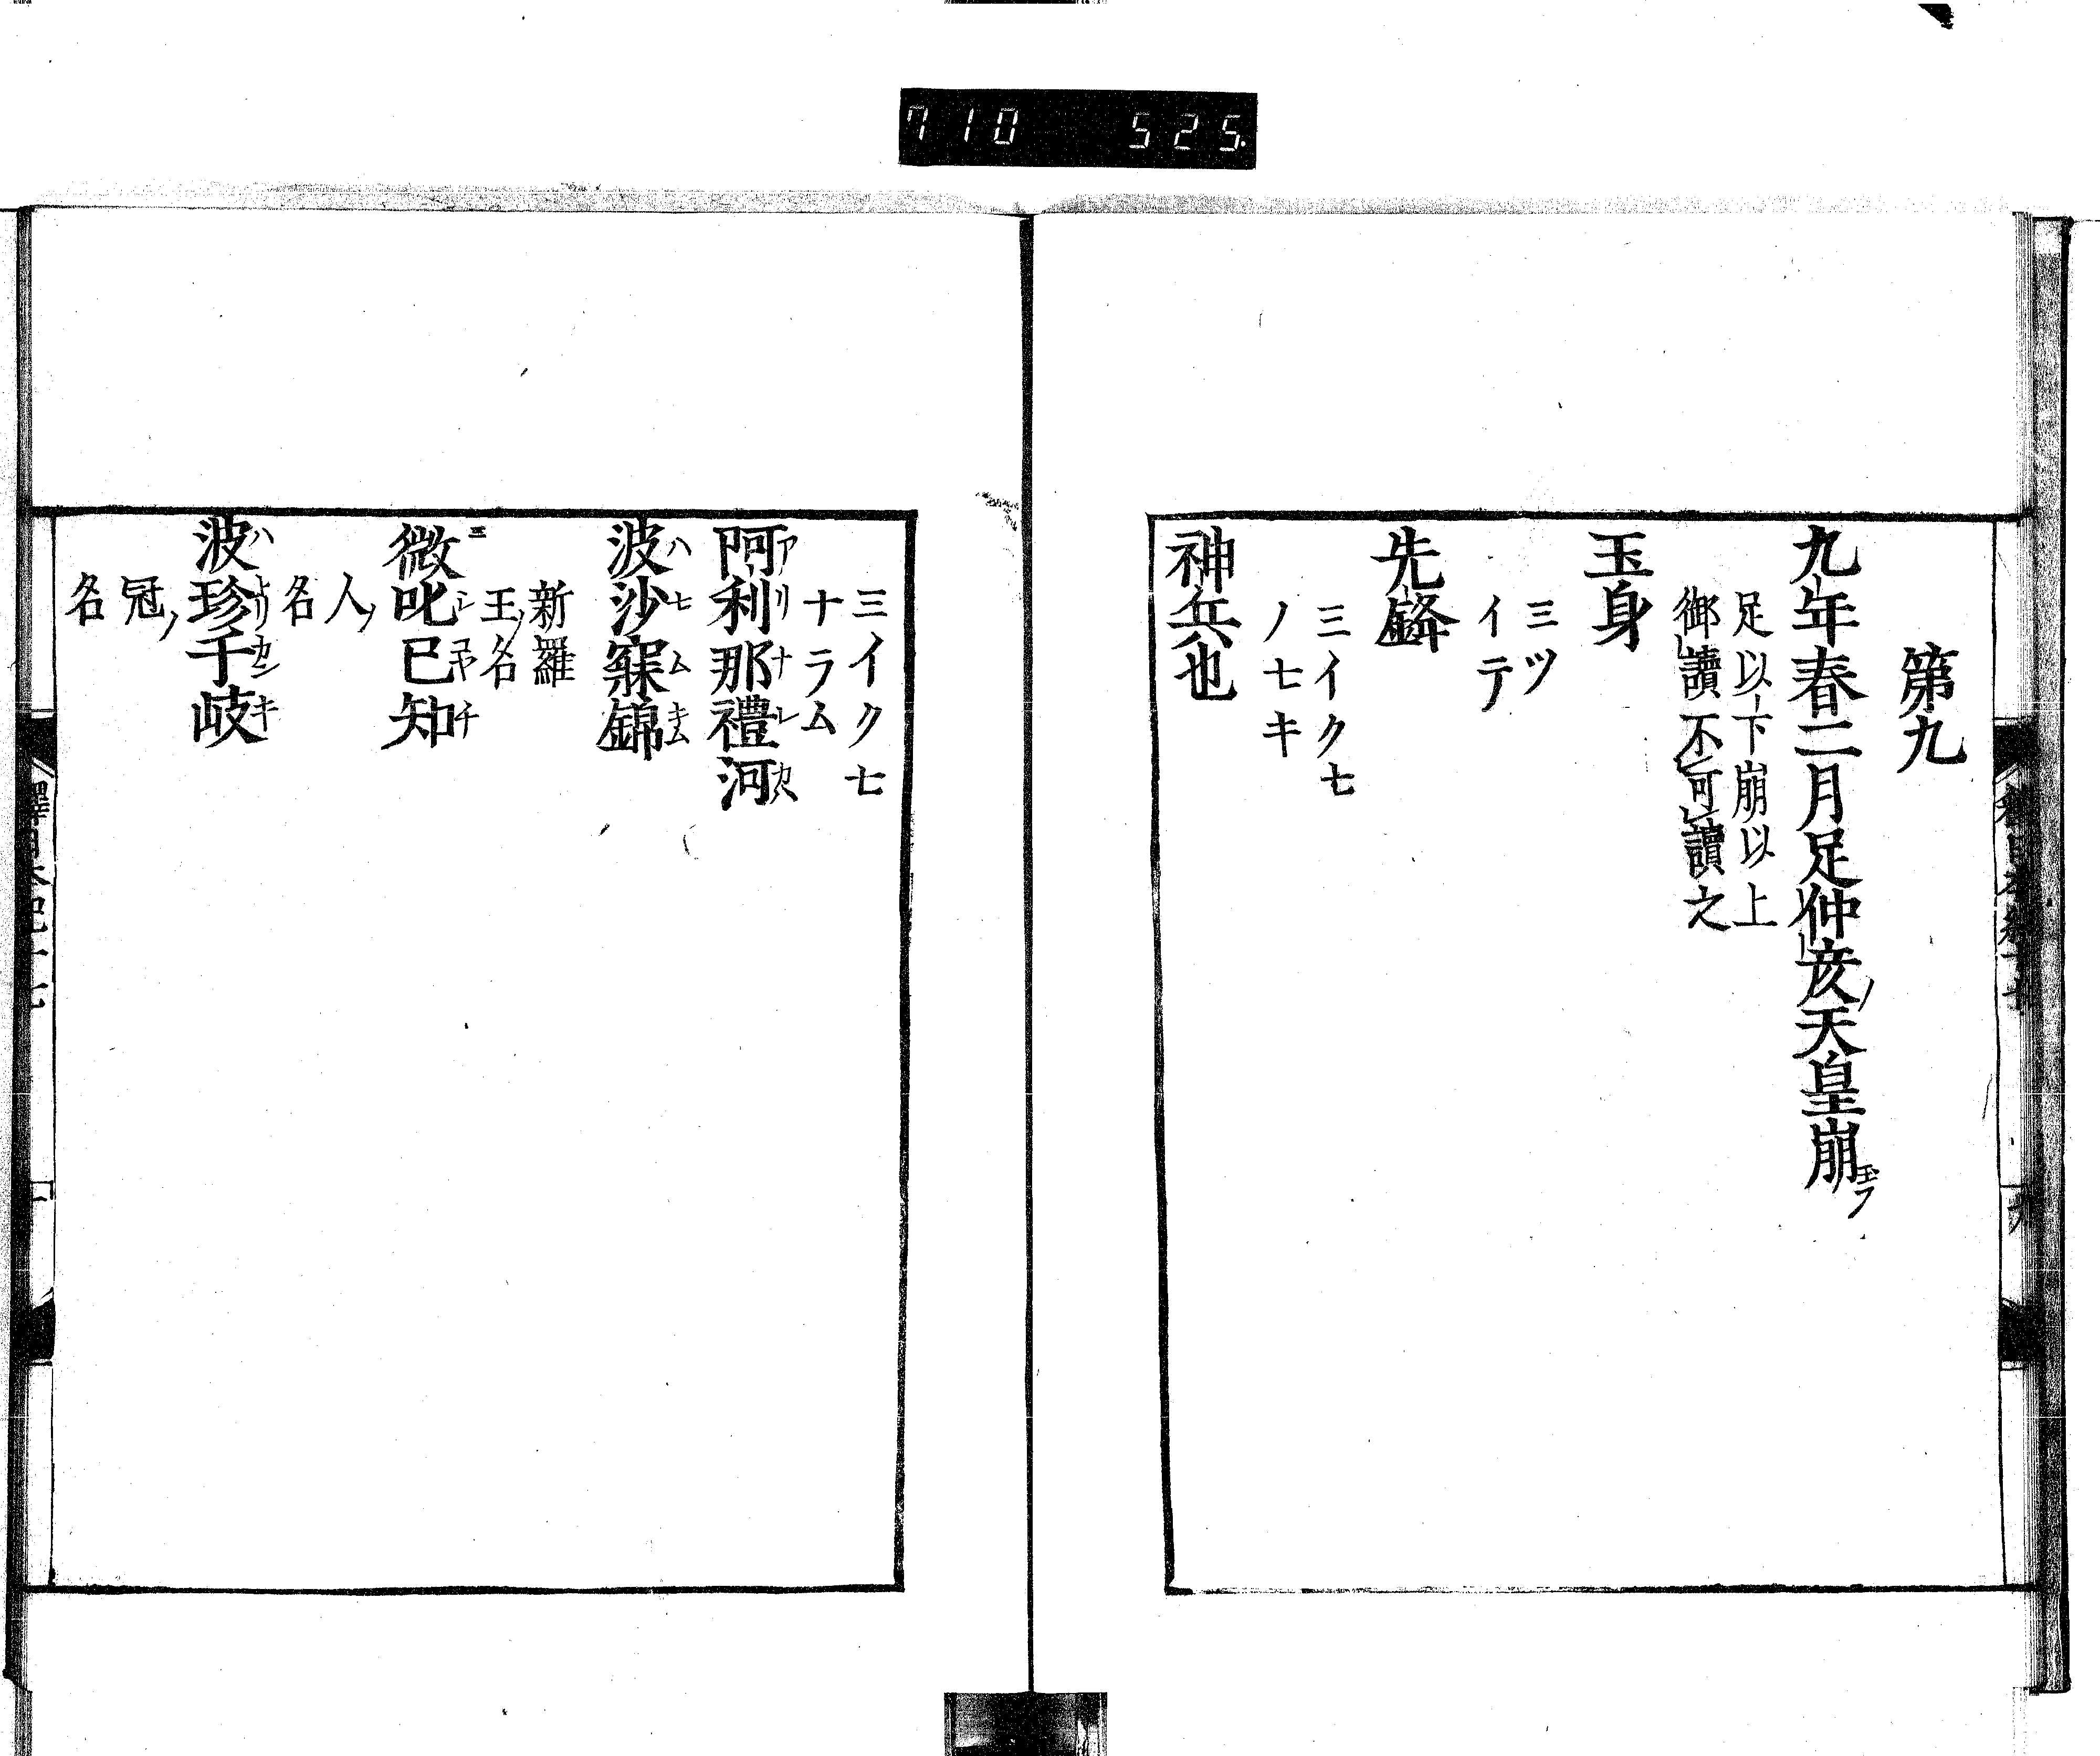 第九
九年春二月足仲彥ノ天皇崩玉フ
足以下崩以上
御讀不可讀之
玉身
ミツ
イテ
先鋒
ミイクセ
ノセキ
神兵也
ミイクセ
ナラム
阿利那禮河
アリナレカハ
波沙寐錦
ハセムキム
新羅ノ
王名
微叱己知
ミシコチ
人ノ
名
波珍干岐
ハトリカンキ
冠ノ
名
710 525.